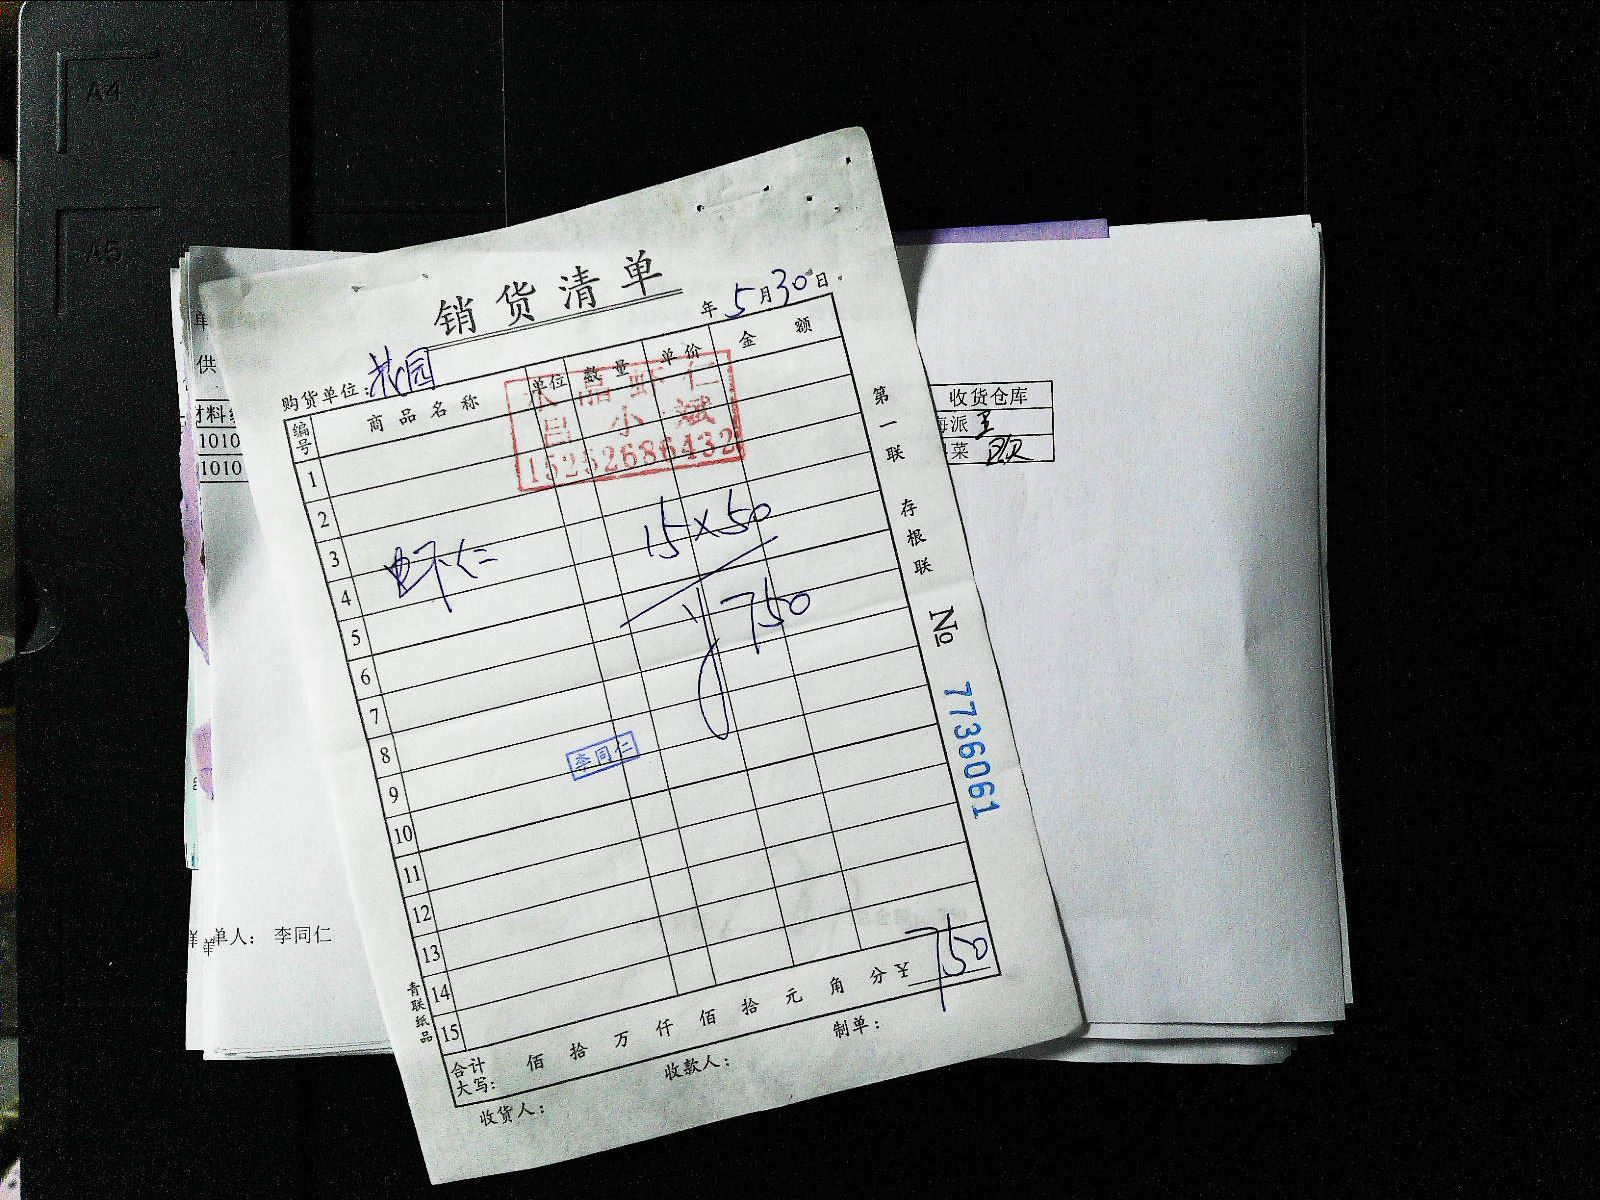 A4
A5
销货清单
年 5月30日
购货单位：花园
编号 商品名称 单位 数量 单价 金额
水晶虾仁
吕小斌
15252686432
1
2
3
虾仁 15×50
4
750
5
6
7
8
李同仁
9
10
11
12
13
14
15
合计大写： 佰 拾 万 仟 佰 拾 元 角 分 ¥ 750
收货人： 收款人： 制单：
第一联 存根联
№ 7736061
青联纸品
单
供
材料
1010
1010
收货仓库
海派
菜
单人： 李同仁